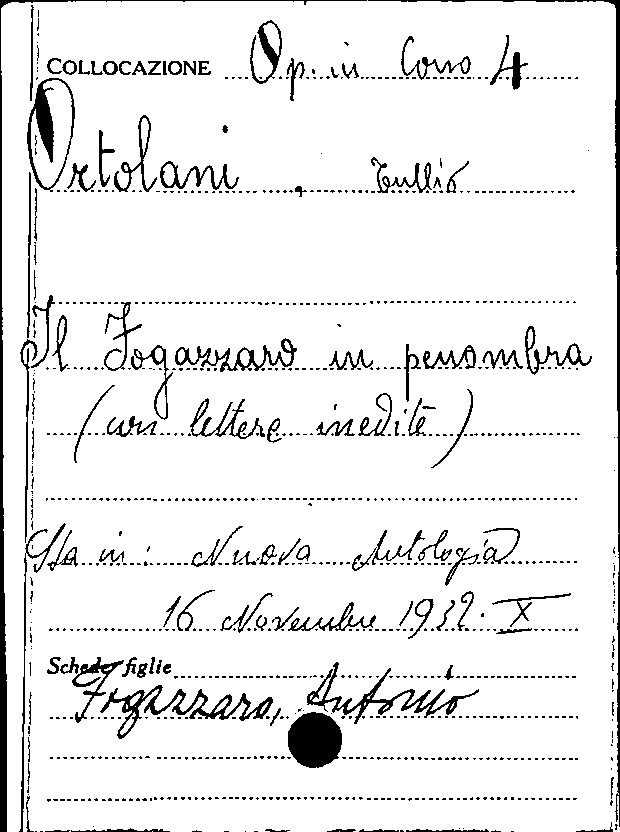 COLLOCAZIONE Op. in Corso 4
Ortolani, Tullio
Il Fogazzaro in penombra
(con lettere inedite)
Sta in: Nuova Antologia
16 Novembre 1932. X
Schede figlie
Fogazzaro, Antonio